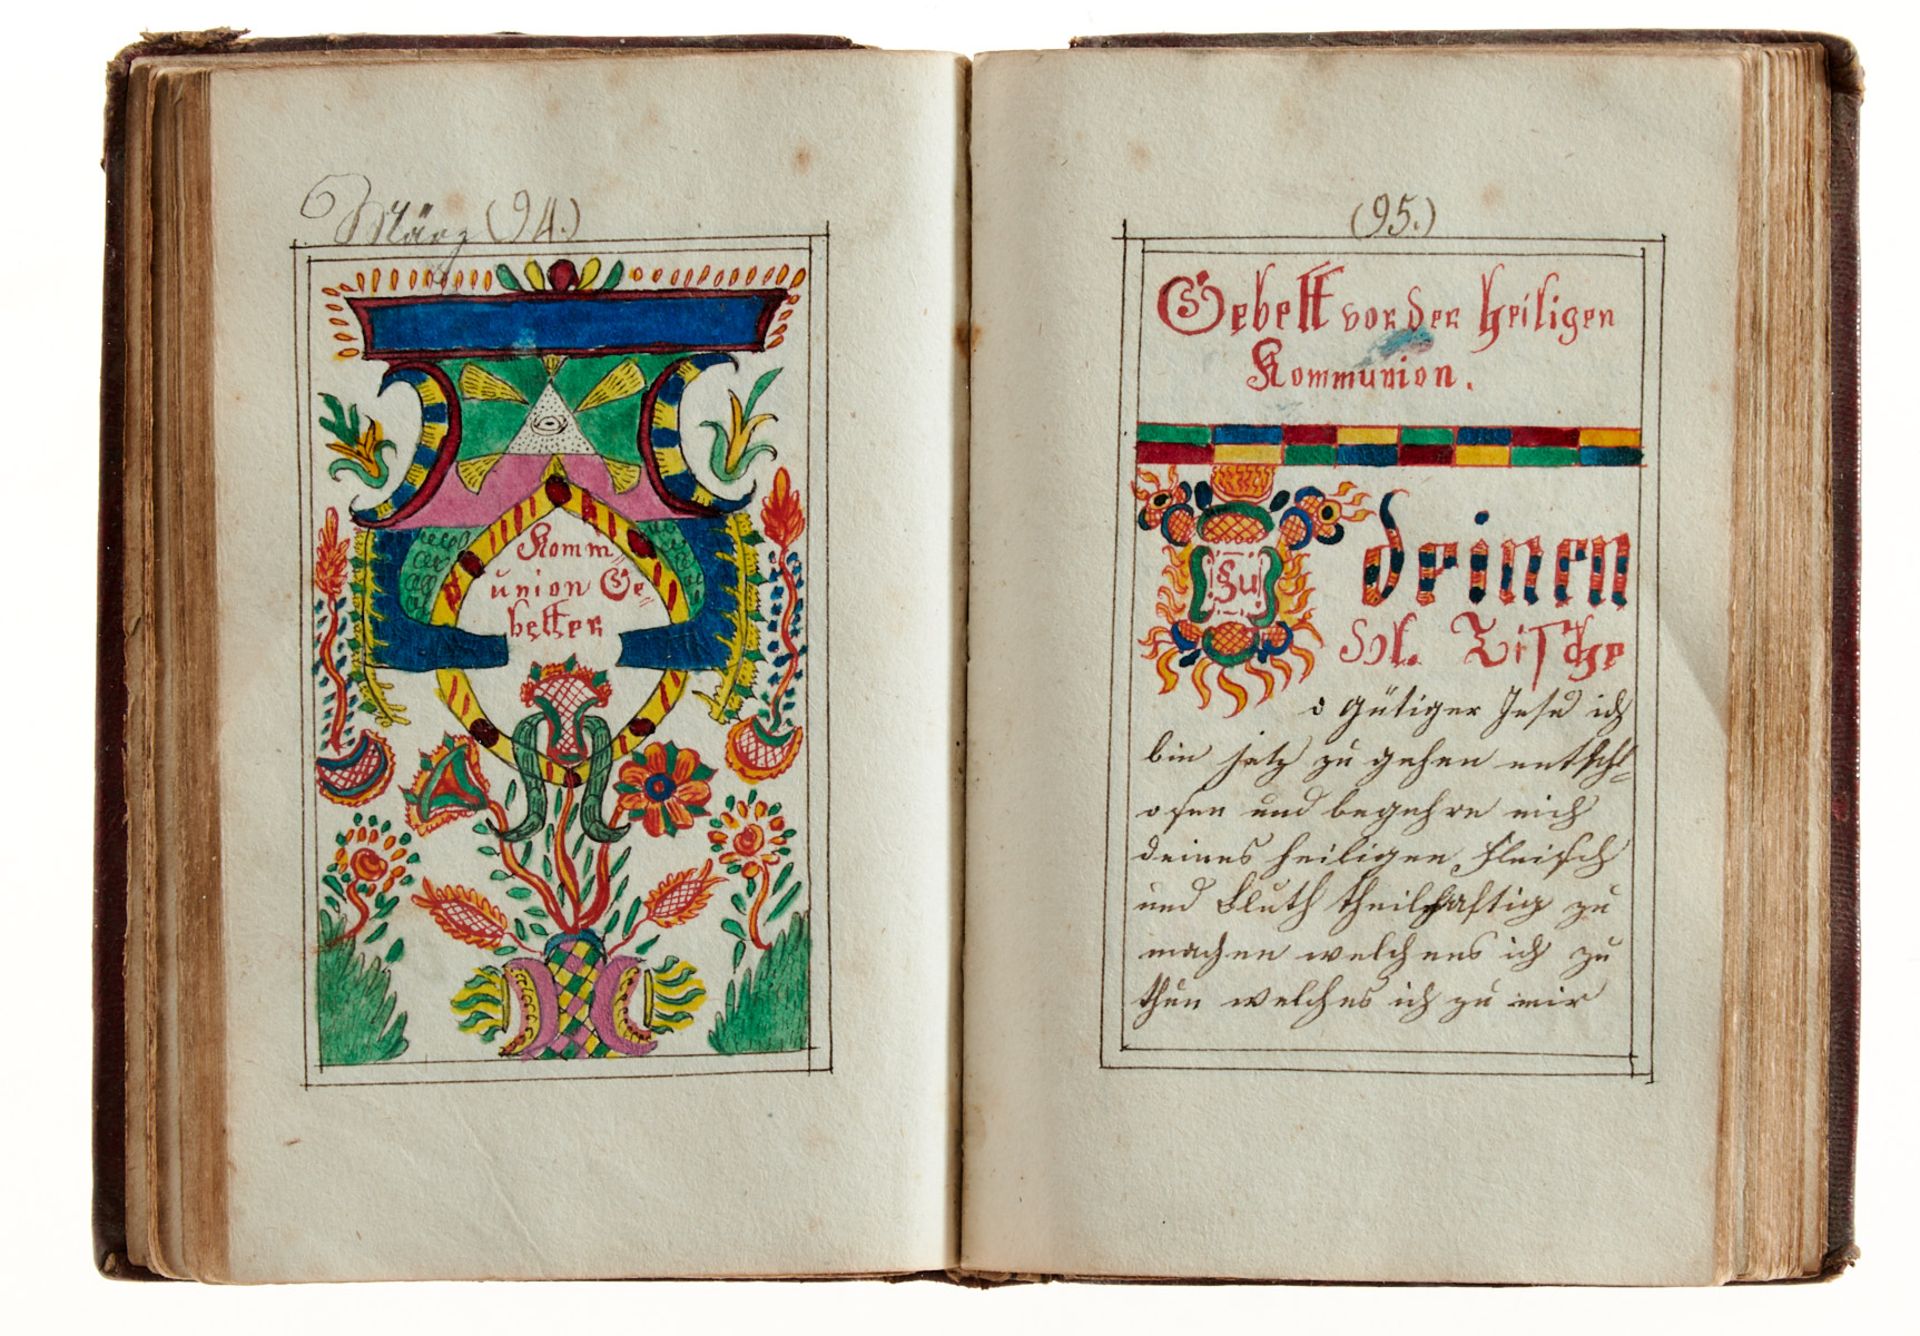 März (94.)
Komm=
union Ge=
better
(95.)
Gebett vor der heiligen
Kommunion.
Zu deinen
hl. Tische
o gütiger Jesu ich
bin jetz zu gehen entschl=
osen und begehre mich
deines heiligen Fleisch
und Bluth theilhaftig zu
machen welchens ich zu
thun welches ich zu mir